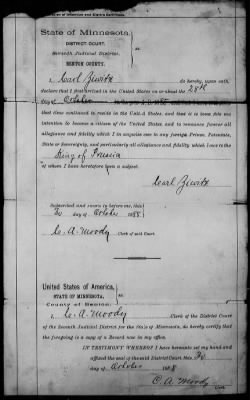 State of Minnesota,
DISTRICT COURT,
Seventh Judicial District,
BENTON COUNTY.
I, Carl Ziwitz do hereby, upon oath,
declare that I first arrived in the United States on or about the 28th
day of October
that time continued to reside in the United States, and that it is bona fide my
intention to become a citizen of the United States, and to renounce forever all
allegiance and fidelity which I in anywise owe to any foreign Prince, Potentate,
State or Sovereignty, and particularly all allegiance and fidelity which I owe to the
King of Prussia
of whom I have heretofore been a subject.
Carl Ziwitz
Subscribed and sworn to before me, this
30 day of October 1888
C. A. Moody Clerk of said Court.
United States of America,
STATE OF MINNESOTA,
County of Benton.
ss.
I, C. A. Moody Clerk of the District Court
of the Seventh Judicial District for the State of Minnesota, do hereby certify that
the foregoing is a copy of a Record now in my office.
IN TESTIMONY WHEREOF I have hereunto set my hand and
affixed the seal of the said District Court this 30
day of October 1888
C. A. Moody
Clerk